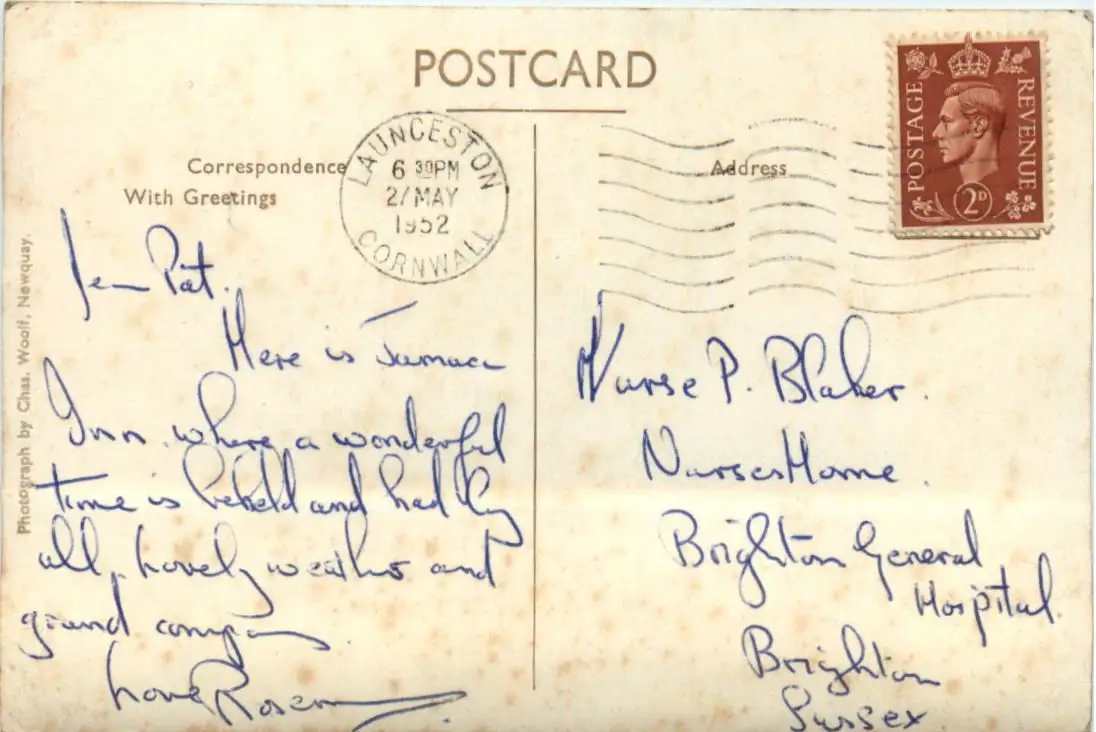 POSTCARD
Correspondence
With Greetings
Address
LAUNCESTON
6 30PM
2/MAY
1952
CORNWALL
POSTAGE
REVENUE
2D
Photograph by Chas. Woolf, Newquay.
Dear Pat.
Here is Jamaica
Inn. where a wonderful
time is beheld and had by
all, Lovely weather and
grand company.
Love
Nurse P. Blaker.
Nurses Home.
Brighton General
Hospital.
Brighton
Sussex.